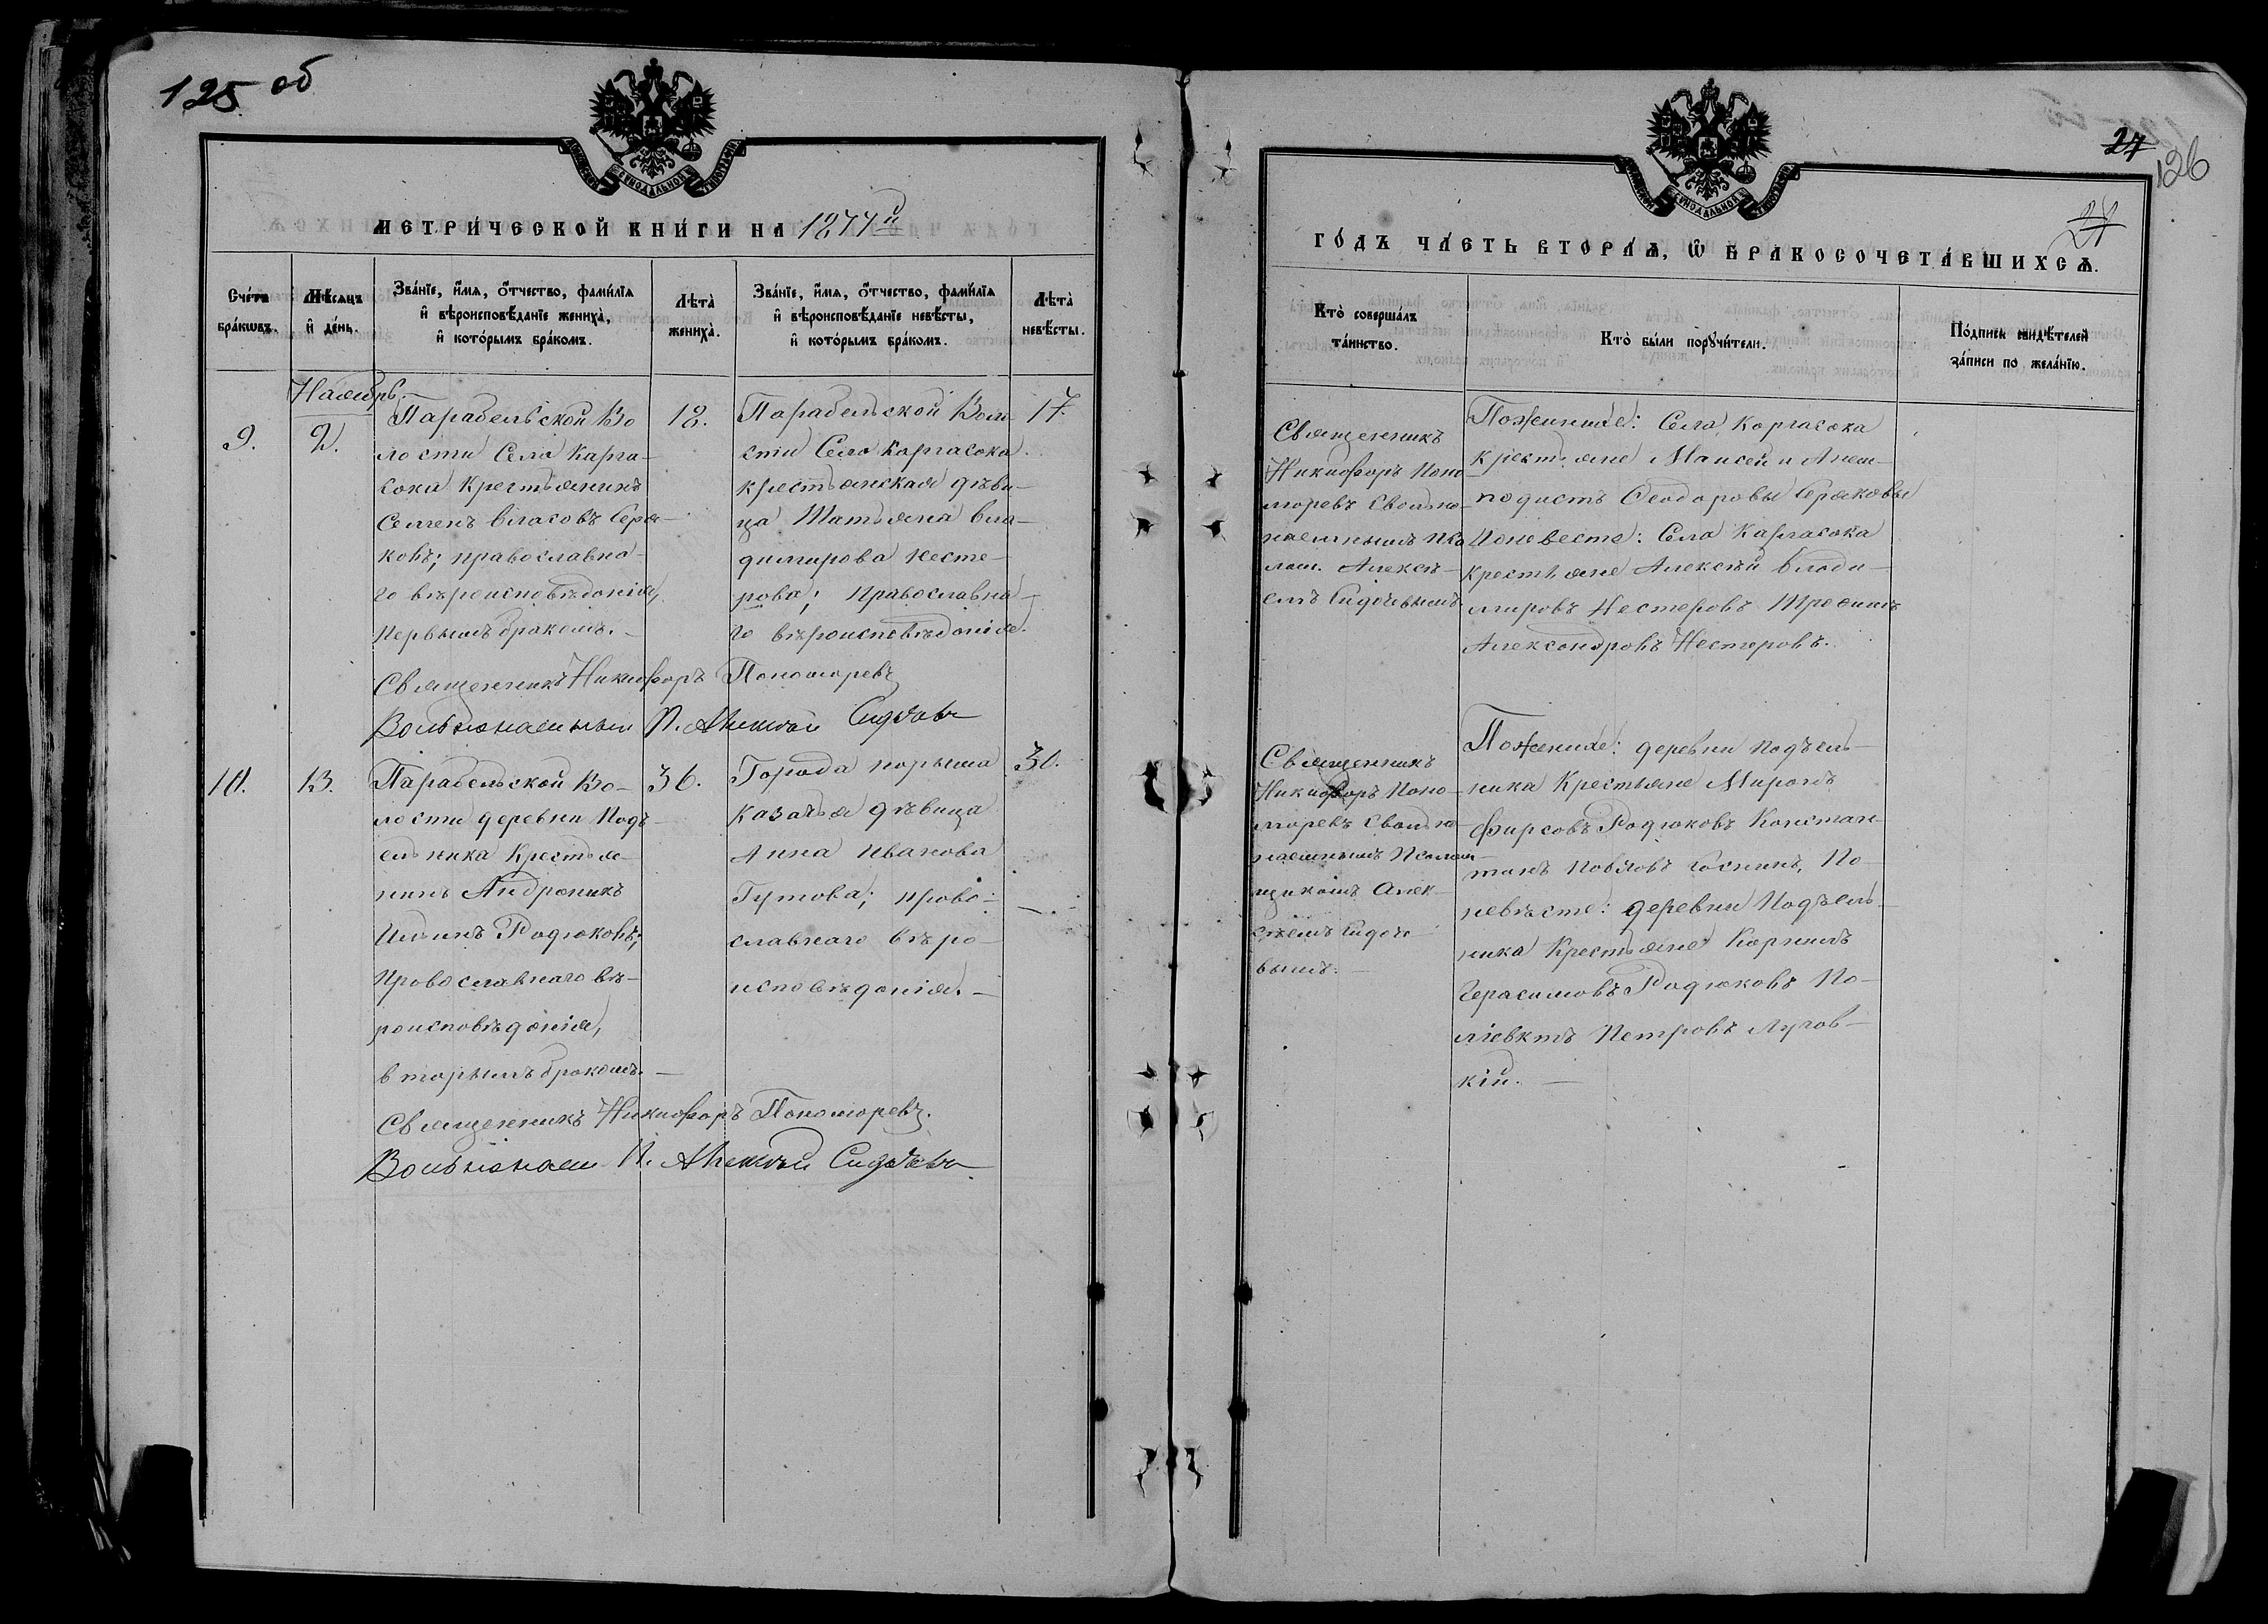 125 об
МЕТРИЧЕСКОЙ КНИГИ НА 1877й
Счетъ браковъ.
Мѣсяцъ и день.
Званіе, имя, отчество, фамилія
и вѣроисповѣданіе жениха,
и которымъ бракомъ.
Лѣта
жениха.
Званіе, имя, отчество, фамилія
и вѣроисповѣданіе невѣсты,
и которымъ бракомъ.
Лѣта
невѣсты.
9.
Ноябрь.
2.
Парабельской Во
лости Села Карга-
сока Крестьянинъ
Семенъ Власовъ Серя-
ковъ; православна-
го вѣроисповѣданія,
первымъ бракомъ.
18.
Парабельской Воло
сти Села Каргасока
крестьянская дѣви-
ца Татьяна Вла-
димирова Несте-
рова; Православна-
го вѣроисповѣданія.
17.
Священникъ Никифоръ Пономоревъ
Вольнонаемный П. Алексѣй Сидоч
10.
13.
Парабельской Во-
лости деревни Подъ-
ельника Крестья-
нинъ Андроникъ
Ильинъ Родюковъ;
Православнаго вѣ-
роисповѣданія,
вторымъ бракомъ.
36.
Города Нарыма
казачья дѣвица
Анна Иванова
Гутова; право-
славнаго вѣро-
исповѣданія.
30.
Священникъ Никифоръ Пономоревъ.
Вольнонаем П. Алексѣй Сидочевъ
27
126
27
ГОДЪ ЧАСТЬ ВТОРАЯ, Ѡ БРАКОСОЧЕТАВШИХСЯ.
Кто совершалъ
таинство.
Кто были поручители.
Подписи свидѣтелей
записи по желанію.
Священникъ
Никифоръ Поно
моревъ Свольно-
наемнымъ Пса
лом. Алексѣ-
емъ Сидочевымъ.
Поженихѣ: Села Каргасока
Крестьяне Моисей и Анем-
подистъ Ѳеодоровы Серяковы
Поневесте: Села Каргасока
Крестьяне Алексѣй Влади-
мировъ Нестеровъ Трофимъ
Александровъ Нестеровъ.
Священникъ
Никифоръ Поно-
моревъ Свольно-
наемнымъ Псалом-
щикомъ Алек-
сѣемъ Сидоче-
вымъ.
Поженихе: деревни Подъель-
ника Крестьяне Миронъ
Фирсовъ Родюковъ Констан-
тинъ Павловъ Соснинъ, По-
невѣсте: деревни Подъель-
ника Крестьяне Корнилъ
Герасимовъ Родюковъ По-
ліевктъ Петровъ Лугов-
кій.